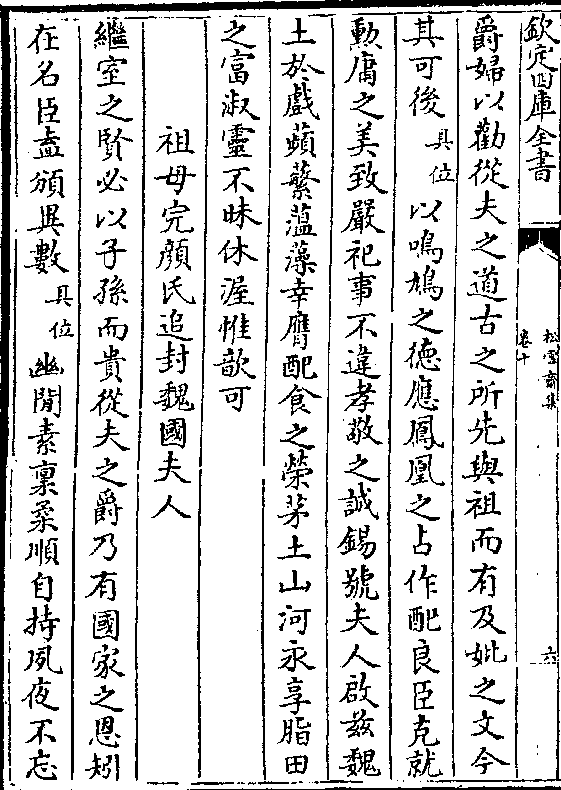 欽定四庫全書
松雪齋集
卷十
六
爵婦以勸從夫之道古之所先與祖而有及妣之文今
其可後具位以鳴鳩之德應鳳凰之占作配良臣克就
勳庸之美致嚴祀事不違孝敬之誠錫號夫人啟兹魏
土於戲蘋蘩薀藻幸膺配食之榮茅土山河永享脂田
之富淑靈不昧休渥惟歆可
祖母完顔氏追封魏國夫人
繼室之賢必以子孫而貴從夫之爵乃有國家之恩矧
在名臣盍頒異數具位幽閒素稟柔順自持夙夜不忘